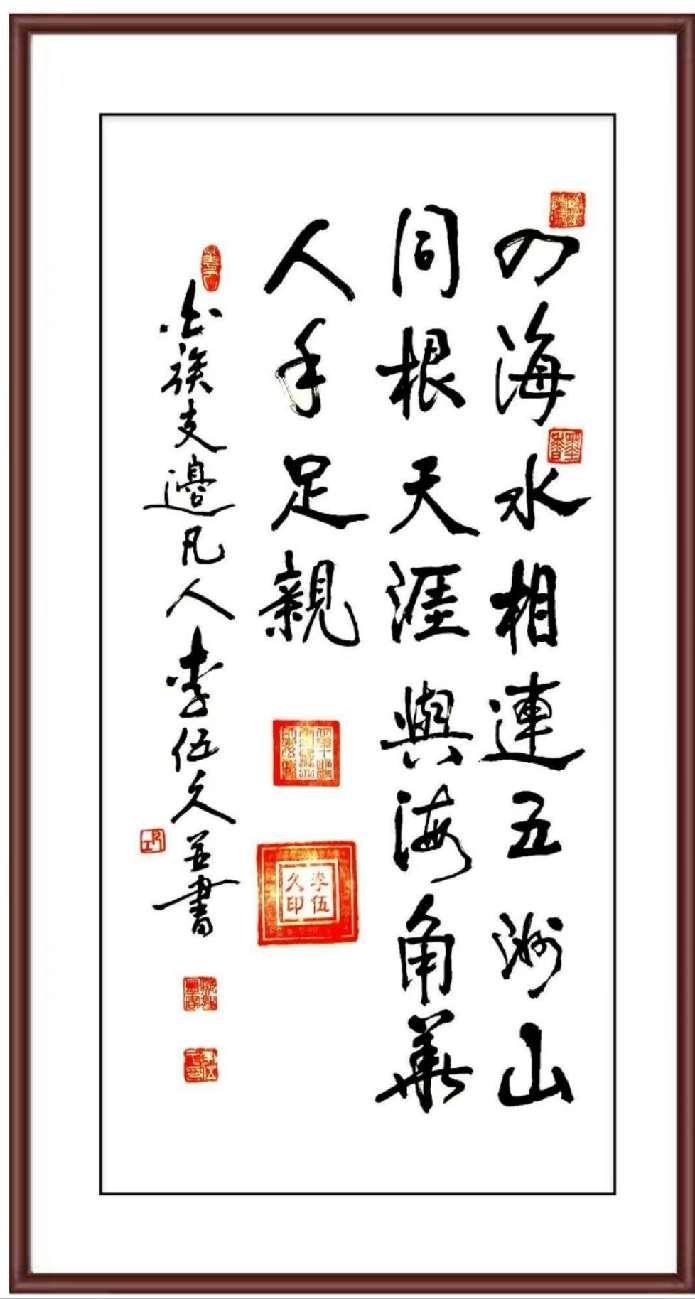 四海水相連五洲山
同根天涯與海角華
人手足親
族支邊凡人李伍久並書
李伍
久印